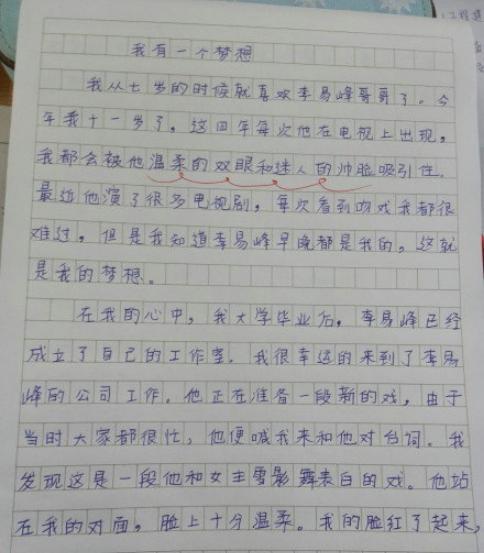 我有一个梦想
我从七岁的时候就喜欢李易峰哥哥了。今
年我十一岁了，这四年每次他在电视上出现，
我都会被他温柔的双眼和迷人的帅脸吸引住。
最近他演了很多电视剧，每次看到吻戏我都很
难过，但是我知道李易峰早晚都是我的，这就
是我的梦想。
在我的心中，我大学毕业后，李易峰已经
成立了自己的工作室，我很幸运的来到了李易
峰的公司工作，他正在准备一段新的戏，由于
当时大家都很忙，他便喊我来和他对台词。我
发现这是一段他和女主雪影舞表白的戏。他站
在我的对面，脸上十分温柔。我的脸红了起来，